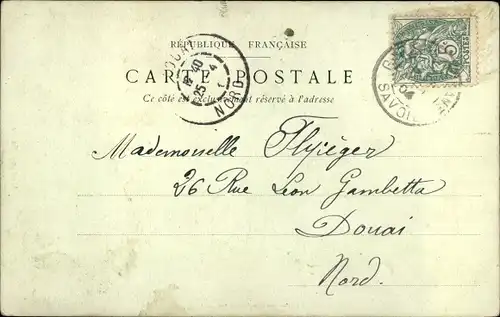 RÉPUBLIQUE FRANÇAISE
CARTE POSTALE
Ce côté est exclusivement réservé à l'adresse
NORD
5
POSTES
Mademoiselle
26 Rue Léon Gambetta
Douai
Nord.